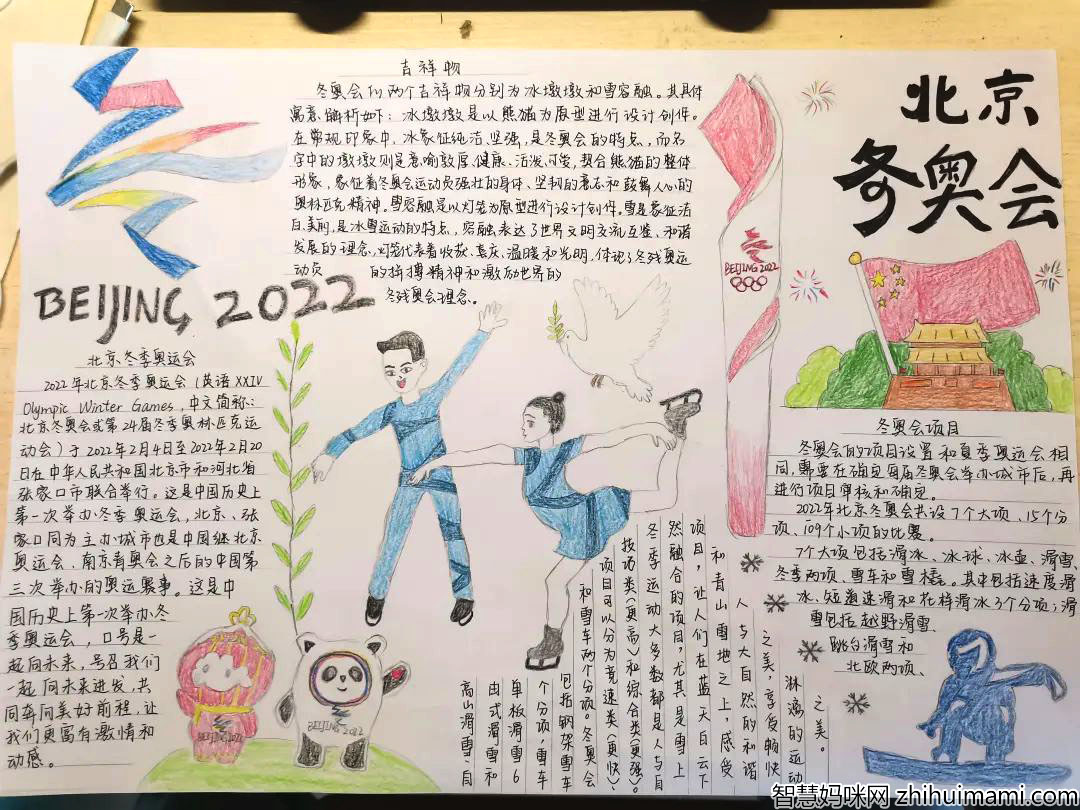 北京
冬奥会
BEIJING 2022
吉祥物
冬奥会们两个吉祥物分别为冰墩墩和雪容融。其具体
寓意解析如下:冰墩墩是以熊猫为原型进行设计创作。
在常规印象中,冰象征纯洁、坚强,是冬奥会的特点,而名
字中的墩墩则是意喻敦厚、健康、活泼、可爱,契合熊猫的整体
形象,象征着冬奥会运动员强壮的身体、坚韧的意志和鼓舞人心的
奥林匹克精神。雪容融是以灯笼为原型进行设计创作。雪是象征洁
白、美丽,是冰雪运动的特点,容融表达了世界文明交流互鉴、和谐
发展的理念,灯笼代表着收获、喜庆、温暖和光明,体现了冬残奥运
动员 的拼搏精神和激励世界的
冬残奥会理念。
北京冬季奥运会
2022年北京冬季奥运会(英语XXIV
Olympic Winter Games,中文简称:
北京冬奥会或第24届冬季奥林匹克运
动会)于2022年2月4日至2022年2月20
日在中华人民共和国北京市和河北省
张家口市联合举行。这是中国历史上
第一次举办冬季奥运会,北京、张
家口同为主办城市也是中国继北京
奥运会、南京青奥会之后的中国第
三次举办的奥运赛事。这是中
国历史上第一次举办冬
季奥运会,口号是一
起向未来,号召我们
一起向未来进发,共
同奔向美好前程,让
我们更富有激情和
动感。
BEIJING 2022
BEIJING 2022
BEIJING 2022
冬奥会项目
冬奥会的项目设置和夏季奥运会相
同,需要在确定每届冬奥会举办城市后,再
进行项目审核和确定。
2022年北京冬奥会共设7个大项、15个分
项、109个小项的比赛。
7个大项包括滑冰、冰球、冰壶、滑雪、
冬季两项、雪车和雪橇。其中包括速度滑
冰、短道速滑和花样滑冰3个分项;滑
雪包括越野滑雪、
跳台滑雪和
北欧两项、
高山滑雪、自
由式滑雪和
单板滑雪6
个分项,雪车
包括钢架雪车
和雪车两个分项。冬奥会
项目可以分为竞速类(更快)、
技功类(更高)和综合类(更强)。
冬季运动大多数都是人与自
然融合的项目,尤其是雪上
项目,让人们在蓝天白云下
和青山雪地之上,感受
人与大自然的和谐
之美,享受畅快
淋漓的运动
之美。
智慧妈咪网 zhihuimami.com